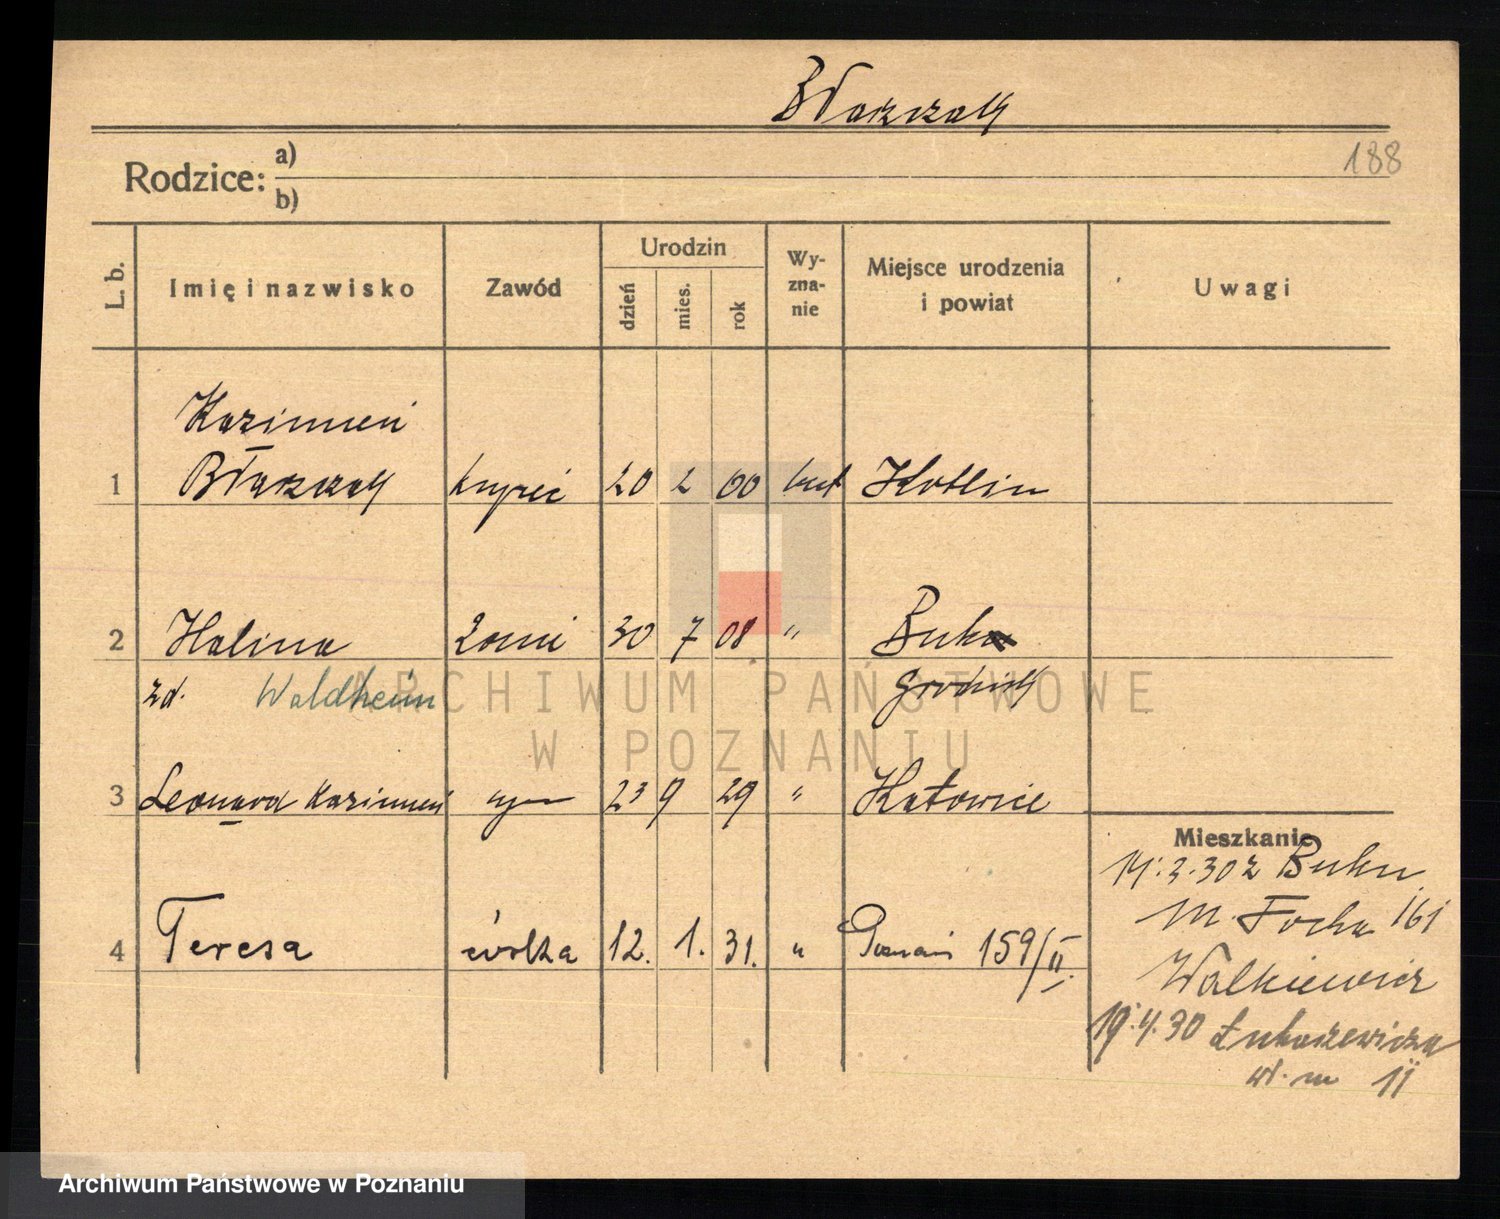 Błaszczak
188
Rodzice: a)
b)
L. b.
Imię i nazwisko
Zawód
Urodzin
dzień
mies.
rok
Wy-
zna-
nie
Miejsce urodzenia
i powiat
Uwagi
Kazimierz
1 Błaszczak kupiec 20 2 00 kat Kotlin
2 Halina żona 30 7 08 " Buk
zd. Waldheim Grodzisk
3 Leonard Kazimierz syn 23 9 29 " Katowice
Mieszkanie
14.2.30 z Buku
m. Focha 161
4 Teresa córka 12. 1. 31. " Poznań 159/II.
Walkiewicz
19.4.30 Łukaszewicza
11
ARCHIWUM PAŃSTWOWE
W POZNANIU
Archiwum Państwowe w Poznaniu